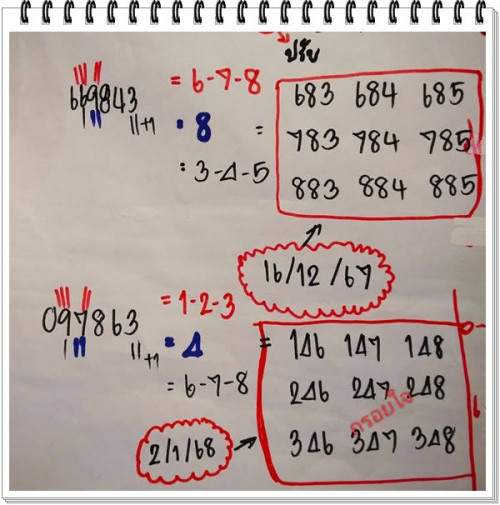 ปรับ
669843 = 6-7-8
11+1 • 8 =
: 3-4-5
683 684 685
783 784 785
883 884 885
16/12/67
097863 = 1-2-3
11+1 = 4 =
= 6-7-8
146 147 148
246 247 248
346 347 348
กรอบใจ
2/1/68